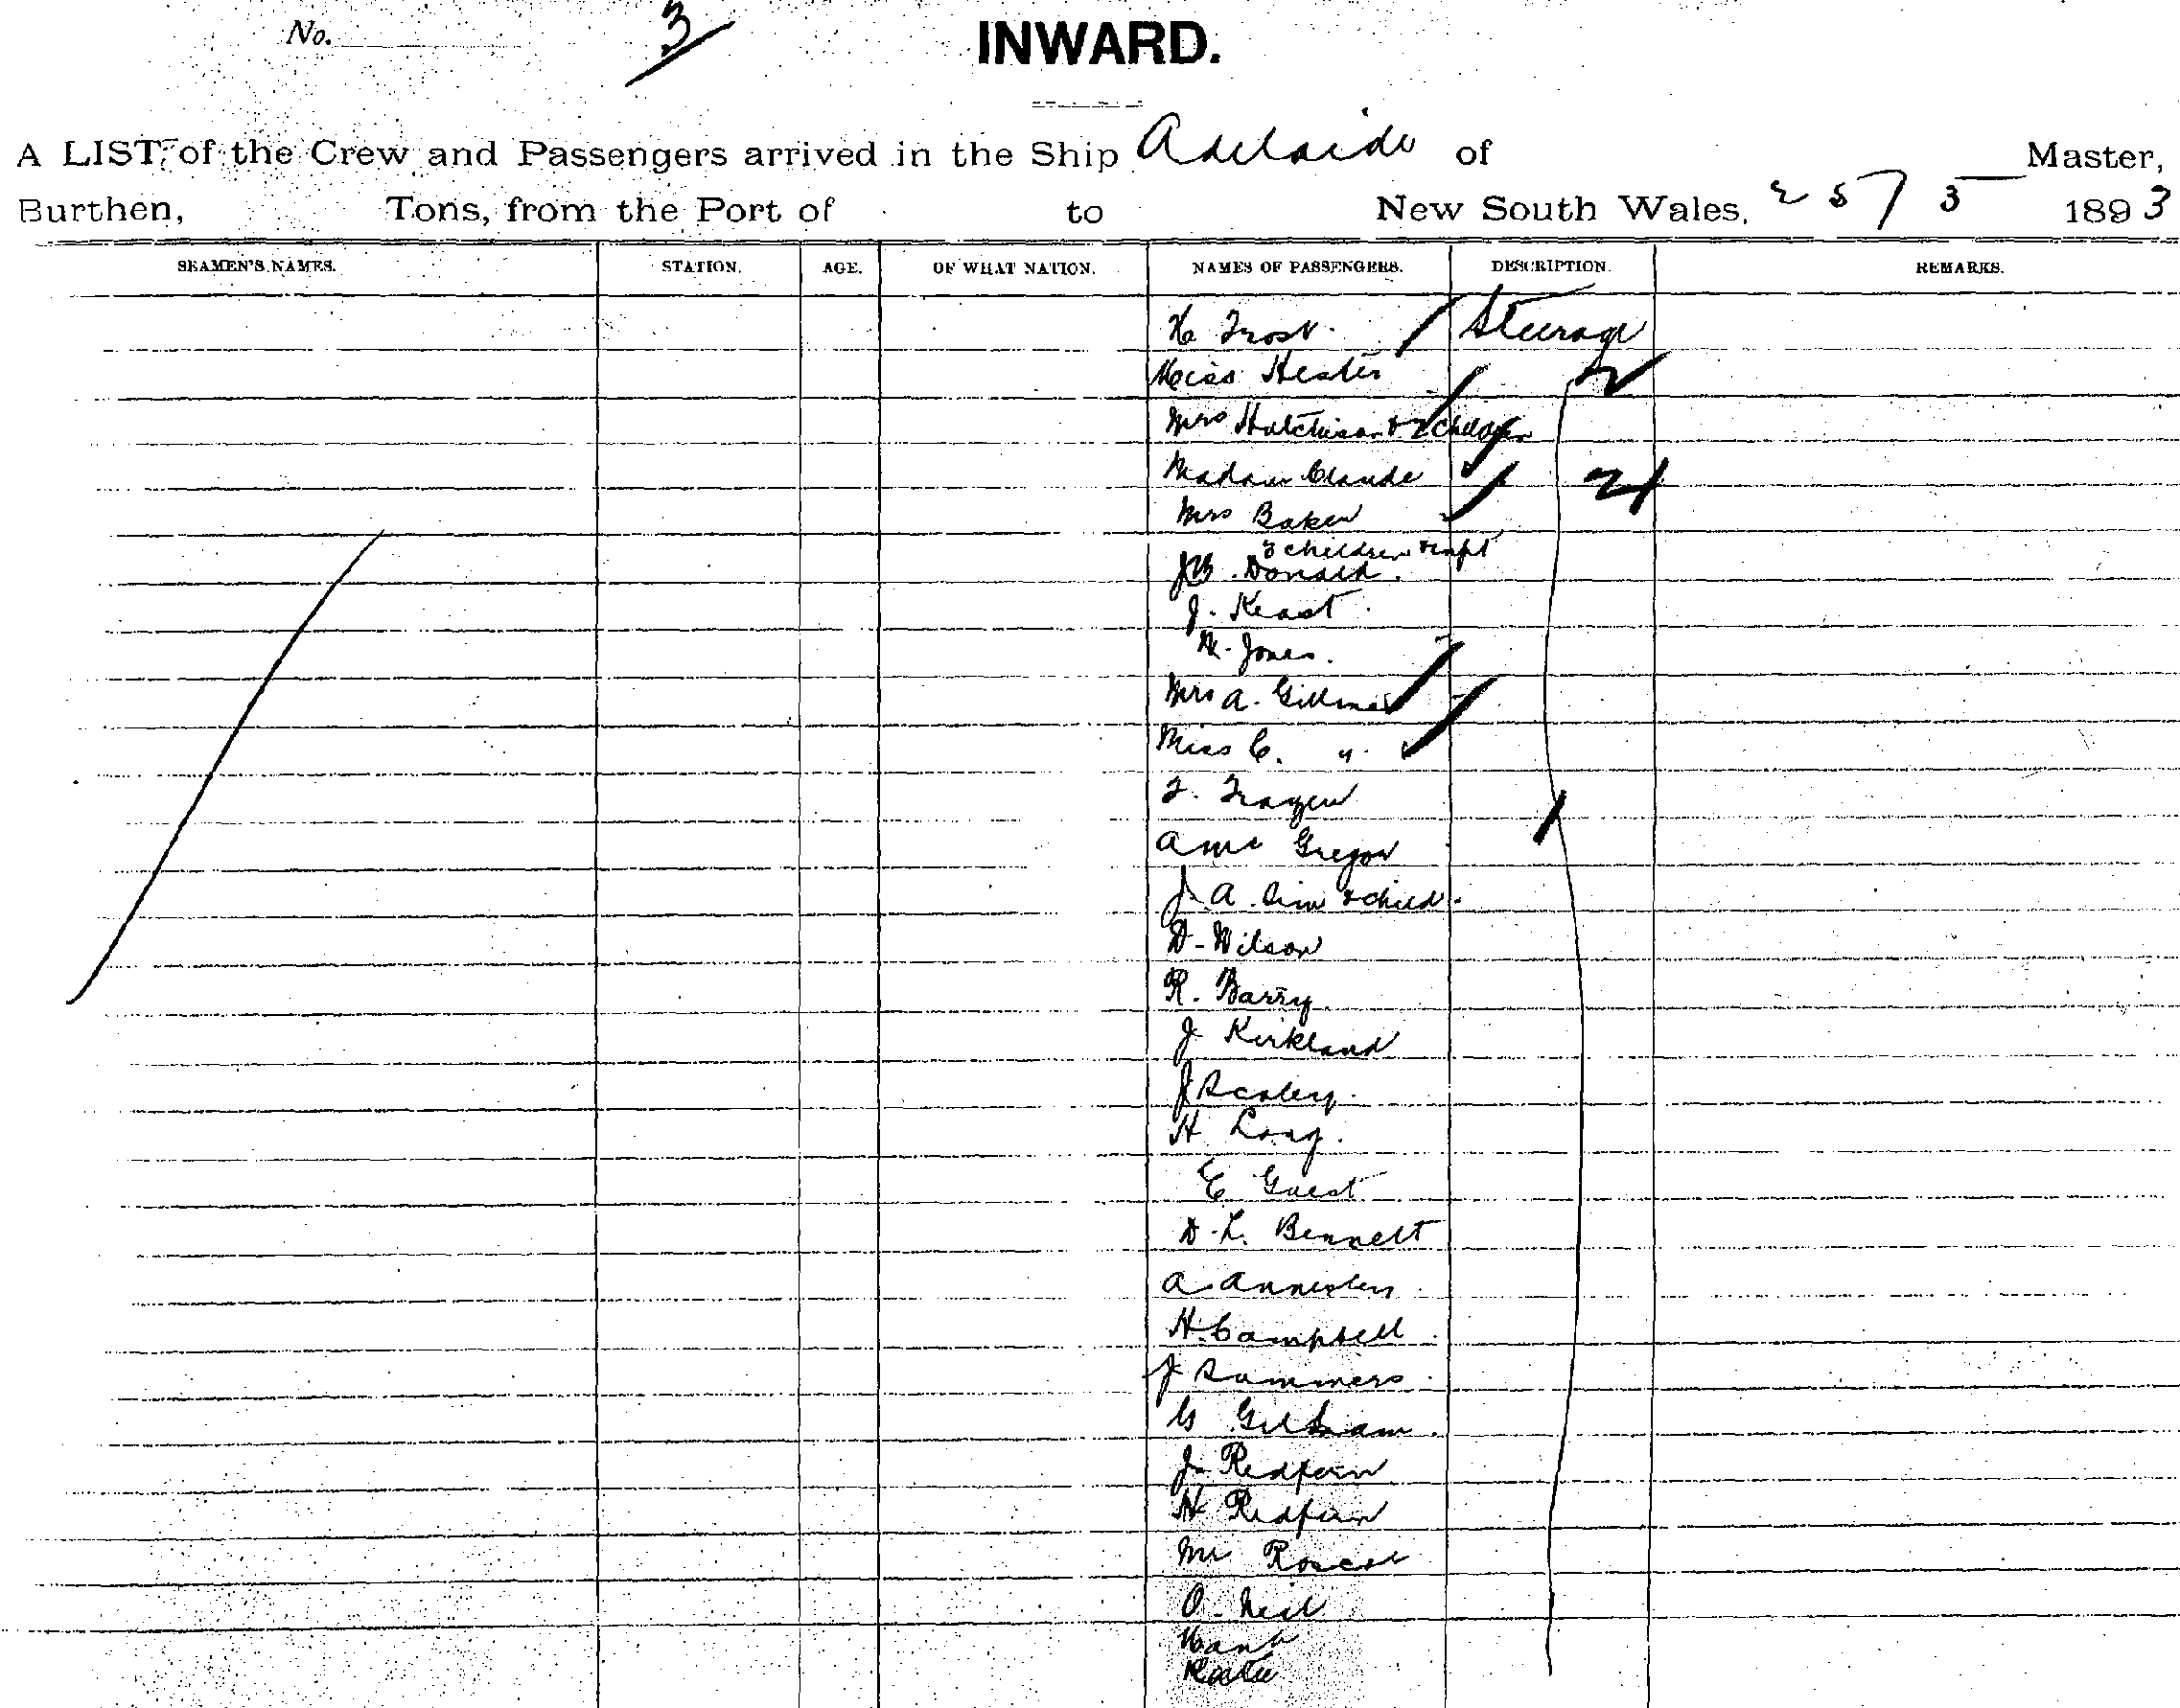 No. 3
INWARD.
A LIST of the Crew and Passengers arrived in the Ship Adelaide of Master,
Burthen, Tons, from the Port of to New South Wales, 25/3 1893
SEAMEN'S NAMES. STATION. AGE. OF WHAT NATION. NAMES OF PASSENGERS. DESCRIPTION. REMARKS.
H Frost Steerage
Miss Hester
Mrs Hutchison & 2 children
Madam Claude
Mrs Baker
children & inft
J B. Donald.
J. Keast
H. Jones.
Mrs A. Gillmer
Miss C. "
F. Frazer
A Mc Gregor
J. A. Sim & child.
D. Wilson
R. Barry.
J Kirkland
J Scaley.
H Long.
E Guest
D. L. Bennett
A Annesley
H. Campbell
J Summers
G
J. Redfern
H Redfern
Mr Roscoe
O. Neil